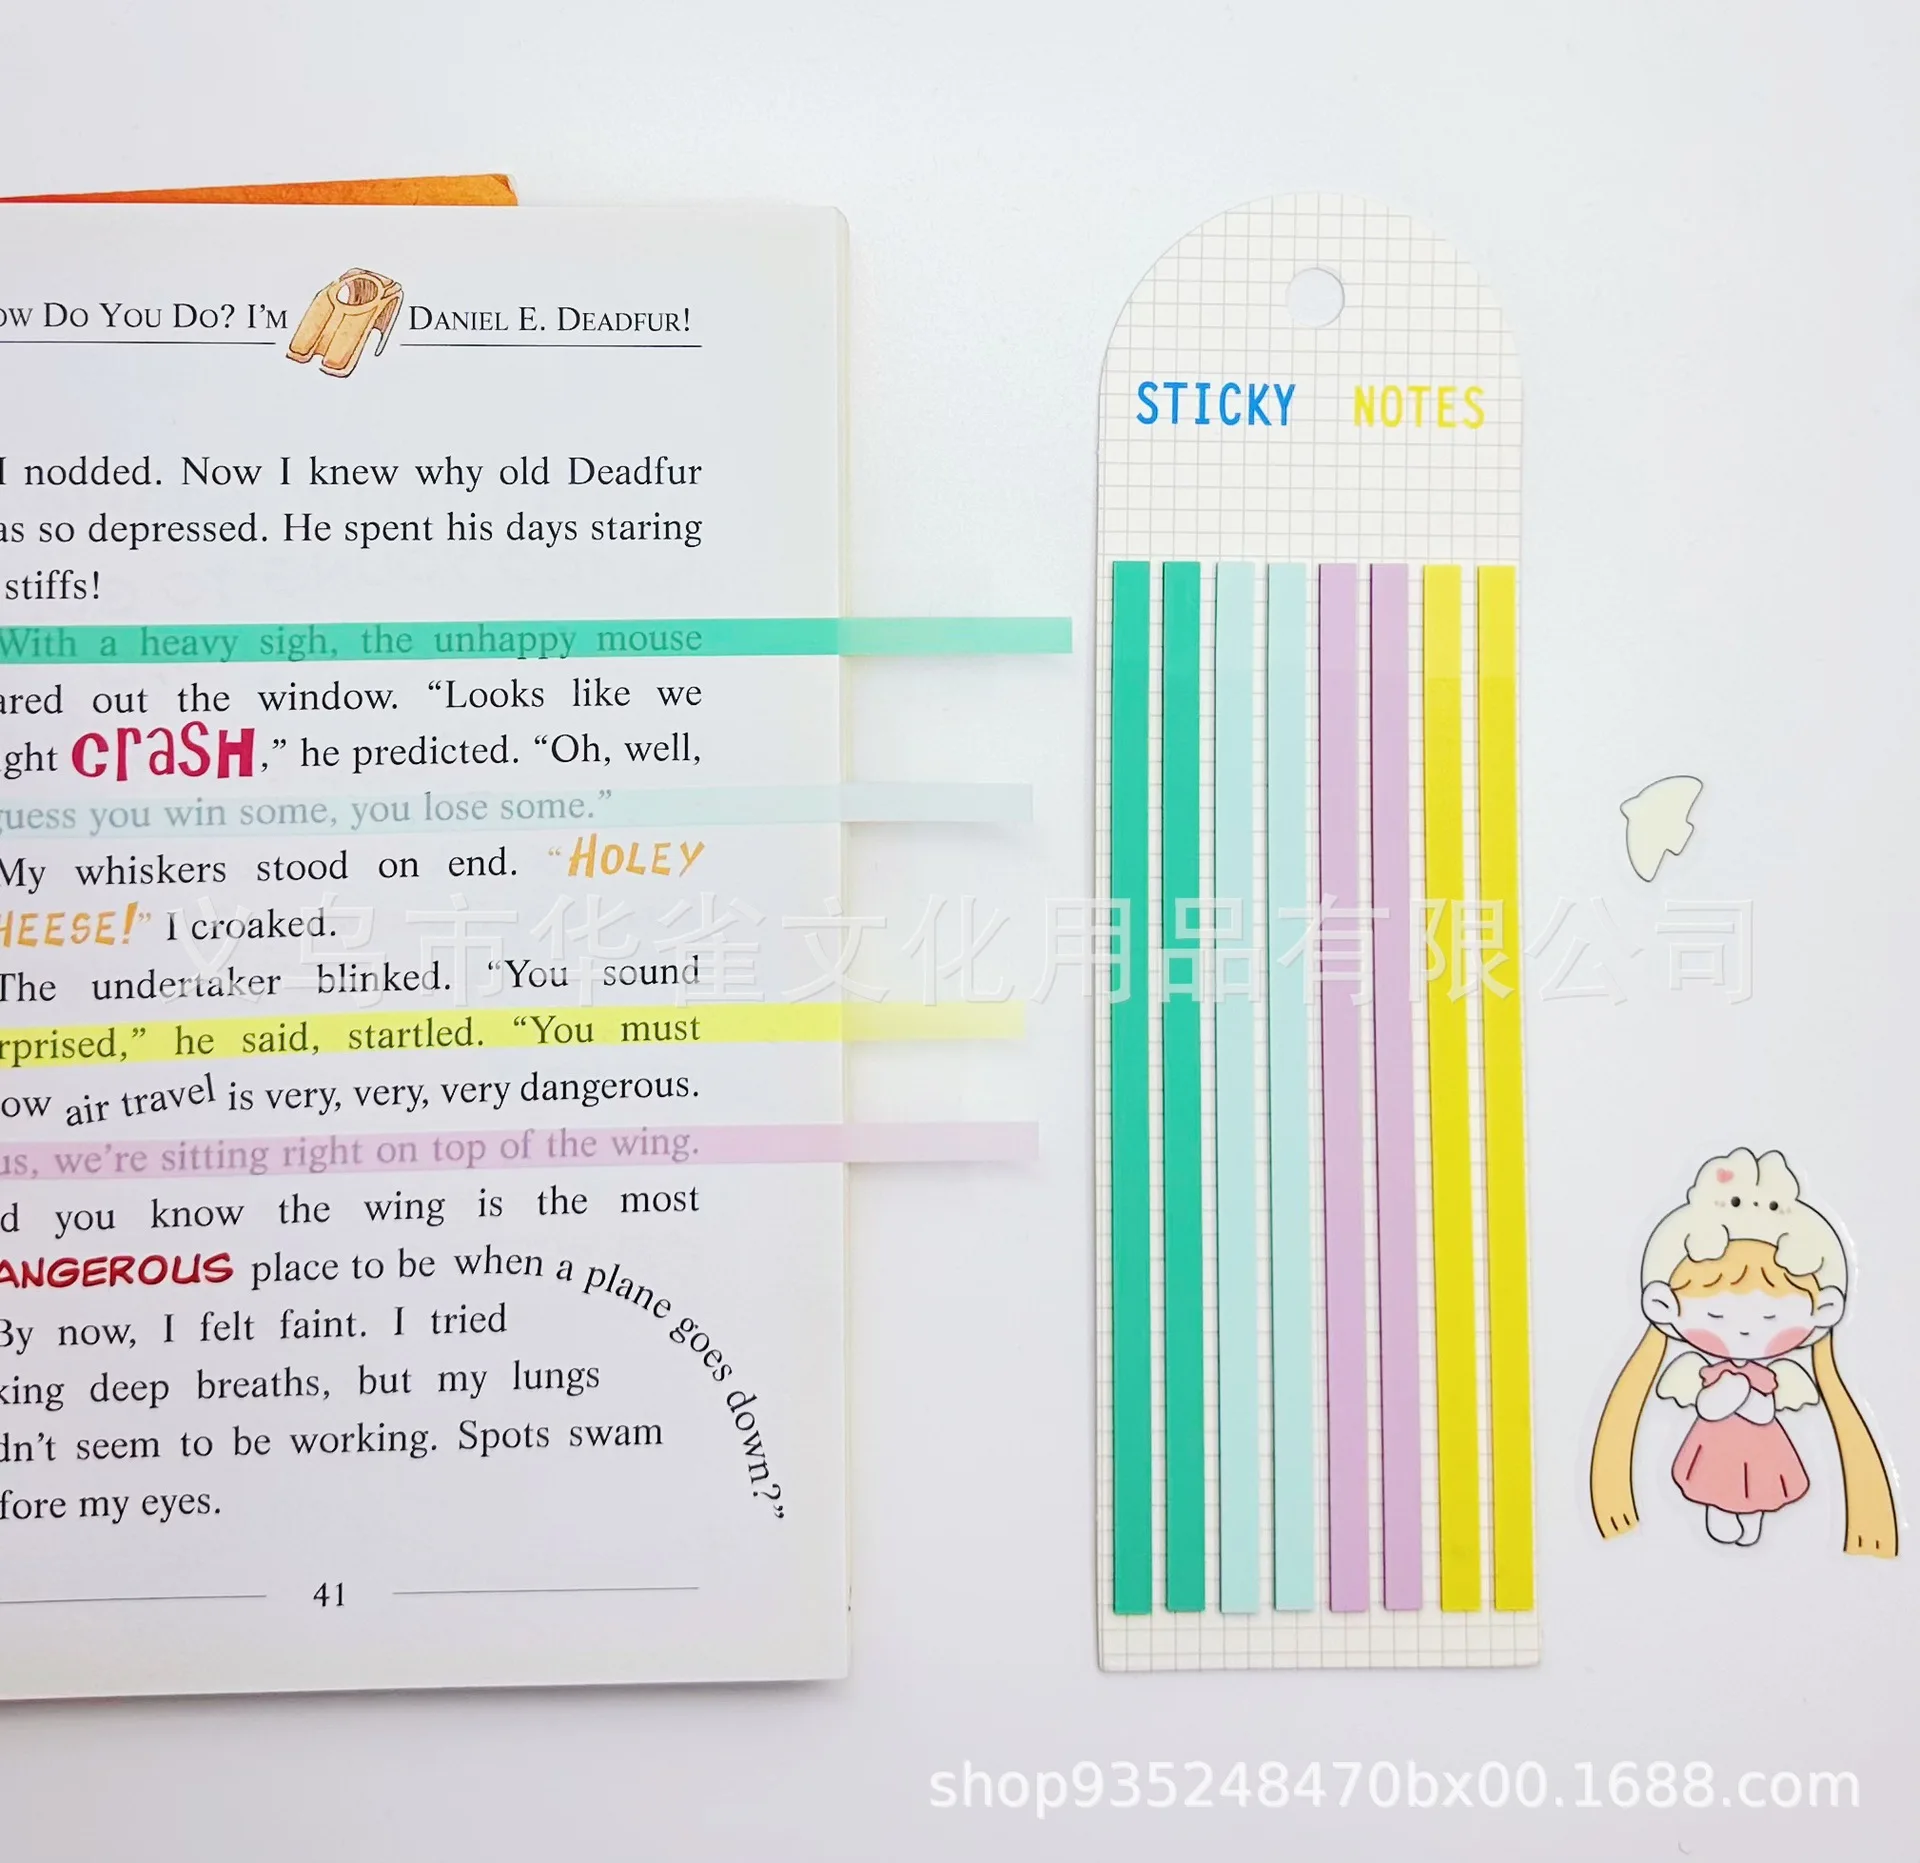 OW DO YOU DO? I'M DANIEL E. DEADFUR!
I nodded. Now I knew why old Deadfur
as so depressed. He spent his days staring
stiffs!
With a heavy sigh, the unhappy mouse
ared out the window. “Looks like we
ght CRASH,” he predicted. “Oh, well,
guess you win some, you lose some.”
My whiskers stood on end. “HOLEY
HEESE!” I croaked.
The undertaker blinked. “You sound
rprised,” he said, startled. “You must
ow air travel is very, very, very dangerous.
us, we’re sitting right on top of the wing.
d you know the wing is the most
ANGEROUS place to be when a plane goes down?”
By now, I felt faint. I tried
king deep breaths, but my lungs
dn’t seem to be working. Spots swam
fore my eyes.
41
STICKY NOTES
义乌市华雀文化用品有限公司
shop935248470bx00.1688.com